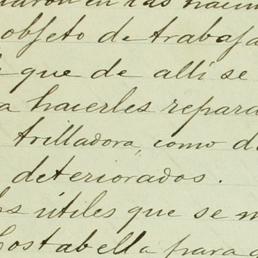 en las
objeto de trabaja
que de allí se
a hacerles repara
trilladora, como d
deteriorados.
útiles que se
Costabella para